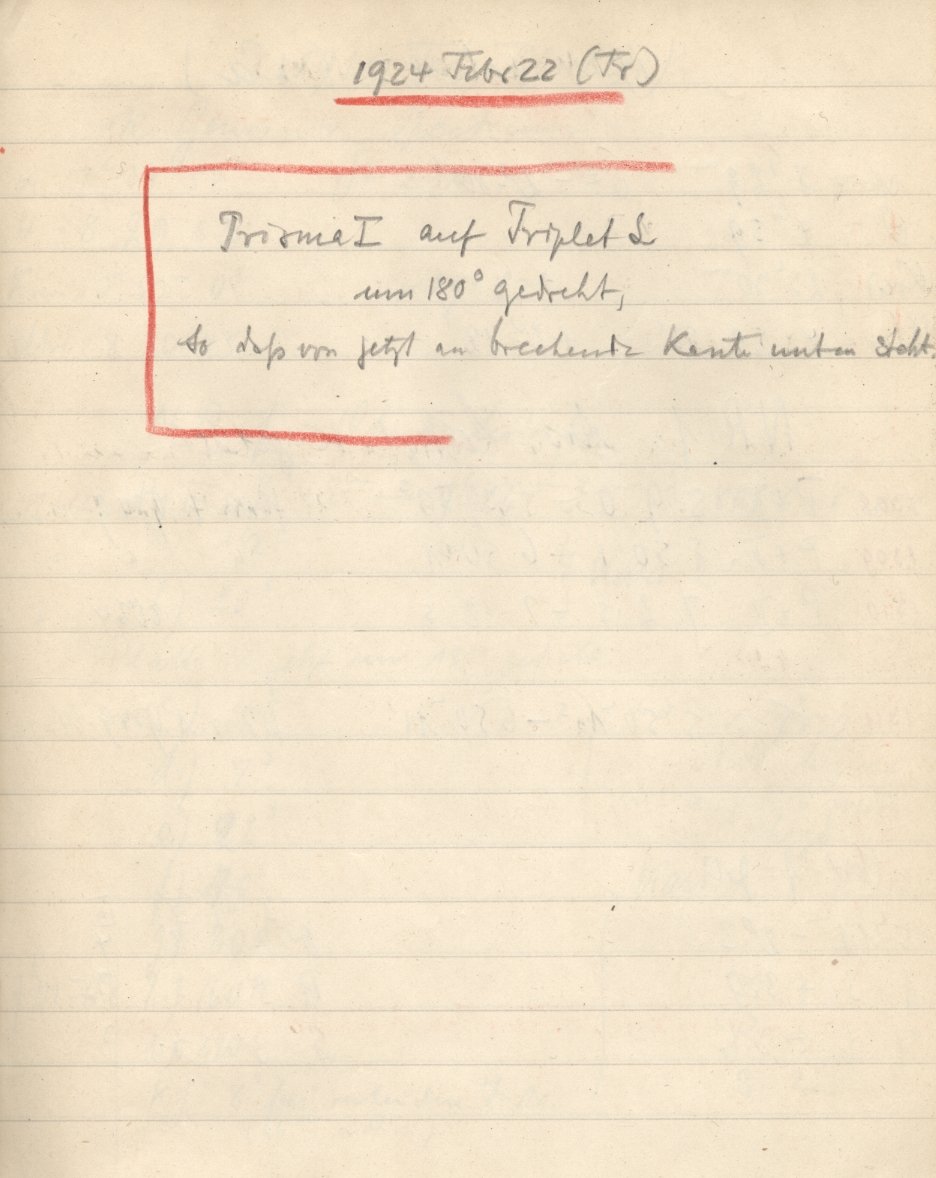 1924 Febr 22 (Fr)
Prisma I auf Triplet S
um 180° gedreht,
so daß von jetzt an brechende Kante unten steht.